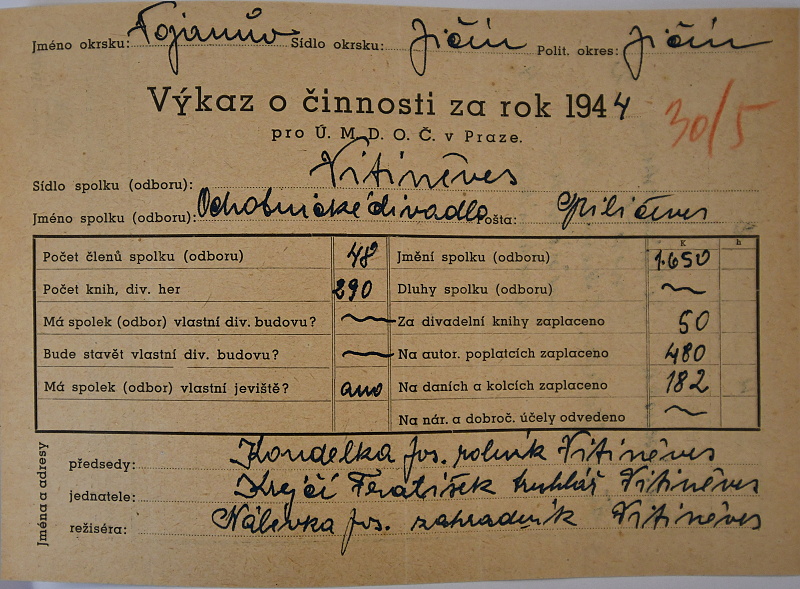 Jméno okrsku: Fojanův Sídlo okrsku: Jičín Polit. okres: Jičín
Výkaz o činnosti za rok 1944
30/5
pro Ú. M. D. O. Č. v Praze.
Sídlo spolku (odboru): Vitiněves
Jméno spolku (odboru): Ochotnické divadlo Pošta:
K h
Počet členů spolku (odboru) 48 Jmění spolku (odboru) 1.650
Počet knih, div. her 290 Dluhy spolku (odboru) ~
Má spolek (odbor) vlastní div. budovu? ~ Za divadelní knihy zaplaceno 50
Bude stavět vlastní div. budovu? ~ Na autor. poplatcích zaplaceno 480
Má spolek (odbor) vlastní jeviště? ano Na daních a kolcích zaplaceno 182
Na nár. a dobroč. účely odvedeno ~
Jména a adresy
předsedy: Kondelka Jos. rolník Vitiněves
jednatele: Krejčí truhlář Vitiněves
režiséra: Nálevka Jos. zahradník Vitiněves